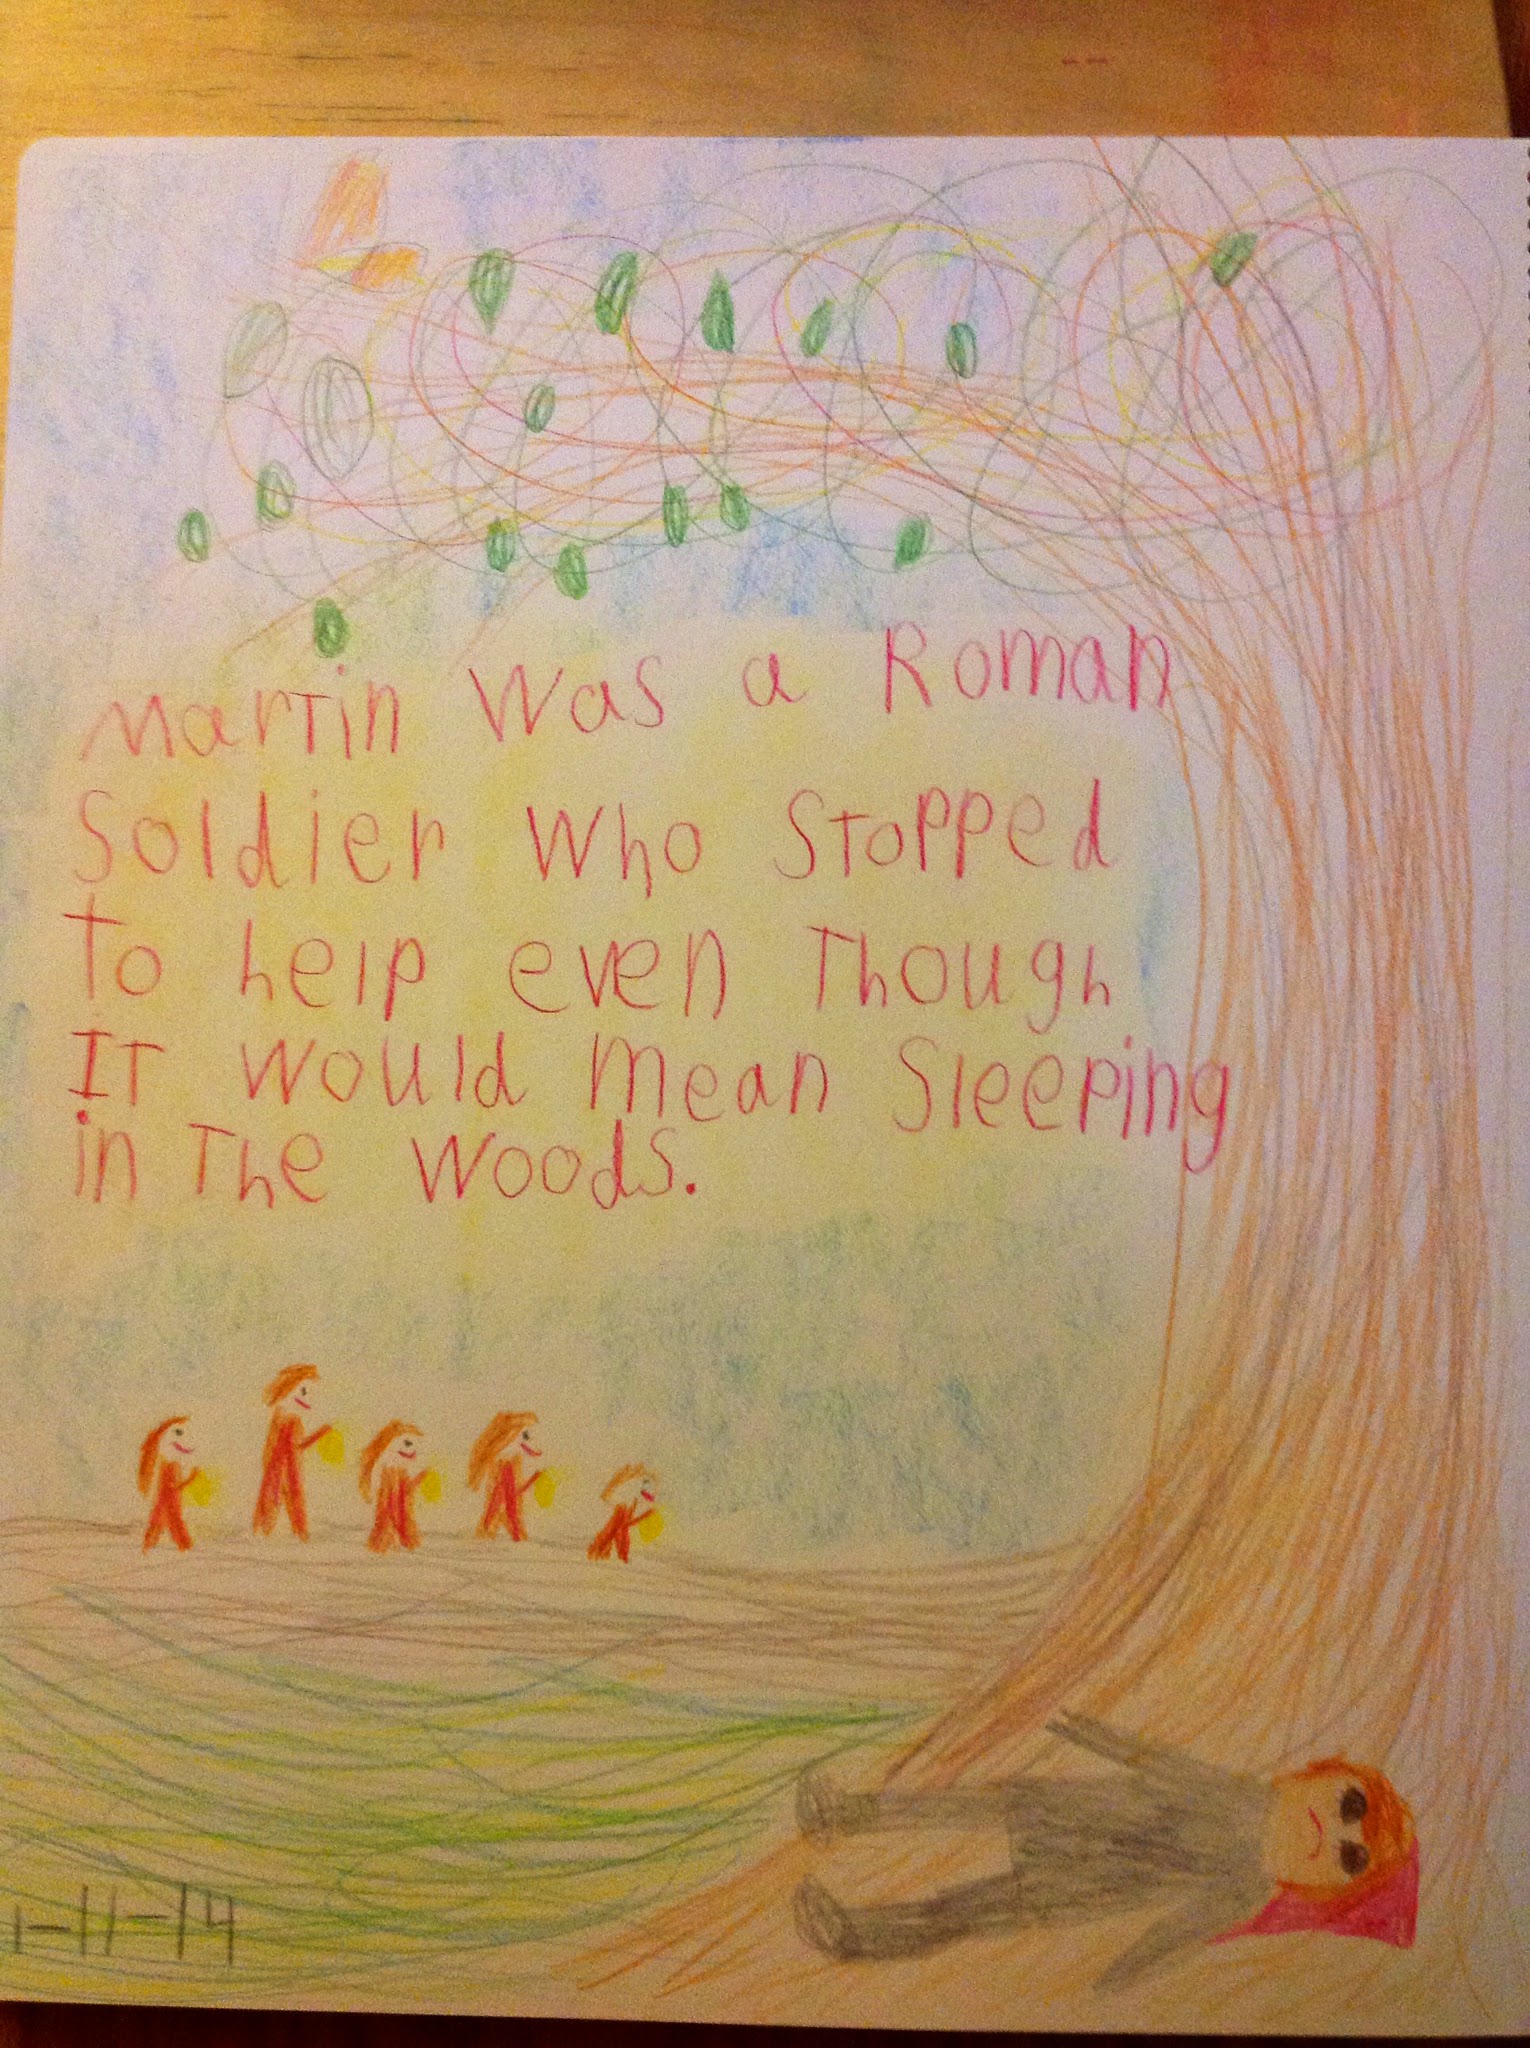 Martin was a Roman
Soldier who Stopped
To help even Though
IT would mean Sleeping
in The woods.
1-11-14